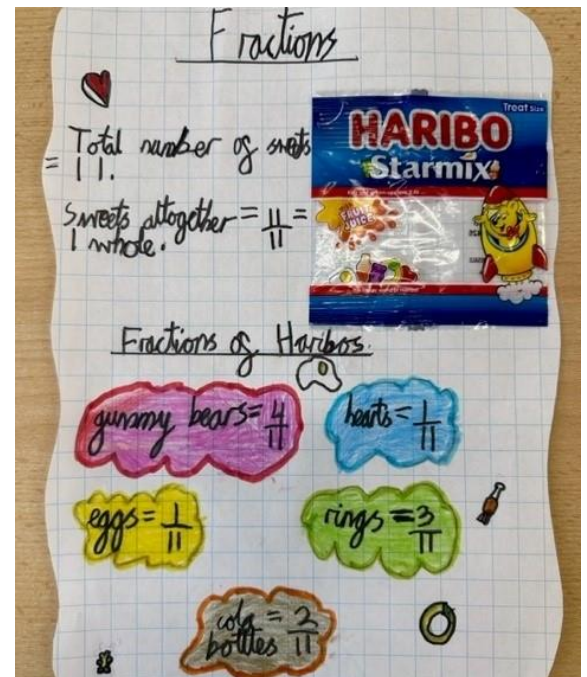 Fractions
Total number of sweets
= 11.
Sweets altogether = 11/11 =
1 whole.
Treat Size
HARIBO
Starmix
FRUIT
JUICE
Fractions of Haribos.
gummy bears = 4/11
hearts = 1/11
eggs = 1/11
rings = 3/11
cola = 2/11
bottles